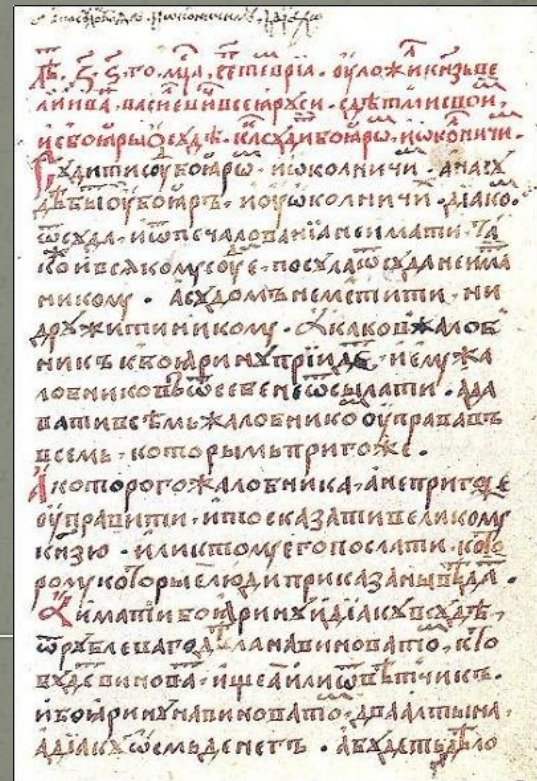 лѣ. ҂ з҃. ѕ҃. го. мц҃а. септеврїа. ѹложи кнѧзь ве
ликїи ива. васильевичь всеѧ рѹси. с дѣтми свои,
и с боѧры о сѹдѣ. ка сѹдити боѧрѡ, и ѡколничи.
Сѹдити сѹ боѧрѡ. и ѡколничи. а на сѹ
дѣ быти ѹ боѧръ. и ѹ ѡколничи. дїако.
ѿ сѹда. и ѿ печалованїа не имати. та
кож и всѧкомѹ сѹдїе. посѹла ѿ сѹда не има
никомѹ. а сѹдомъ не мстити. ни
дрѹжити никомѹ. А каков жалоб
никъ к боѧринѹ прїидѣ. и емѹ жа
лобниковъ ѿ себе не ѿсылати. а да
вати всѣмъ жалобнико ѹправа въ
всемь. которымъ пригоже.
А которого жалобника. а не пригоже
ѹправити. и то сказати великомѹ
кнѧзю. или к томѹ его послати. кото
ромѹ которые люди приказаны вѣда.
А имати боѧринѹ и дїакѹ в сѹдѣ,
ѿ рѹблева го дѣла на виновато, кто
бѹде винова. ищеа или ѿвѣтчикъ.
и боѧринѹ на виновато. два алтына.
а дїакѹ ѡсмь денегъ. а бѹдеть дѣло